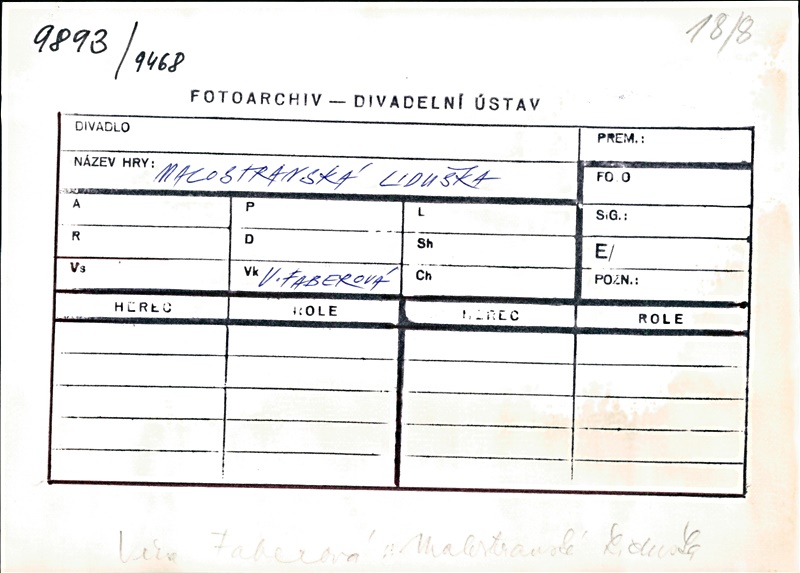 9893/9468
18/8
FOTOARCHIV — DIVADELNÍ ÚSTAV
DIVADLO
PREM.:
NÁZEV HRY: MALOSTRANSKÁ LIDUŠKA
FOTO
A P L
SIG.:
R D Sh
E/
Vs Vk V. FABEROVÁ Ch
POZN.:
HEREC ROLE HEREC ROLE
Věra Faberová Malostranská Liduška